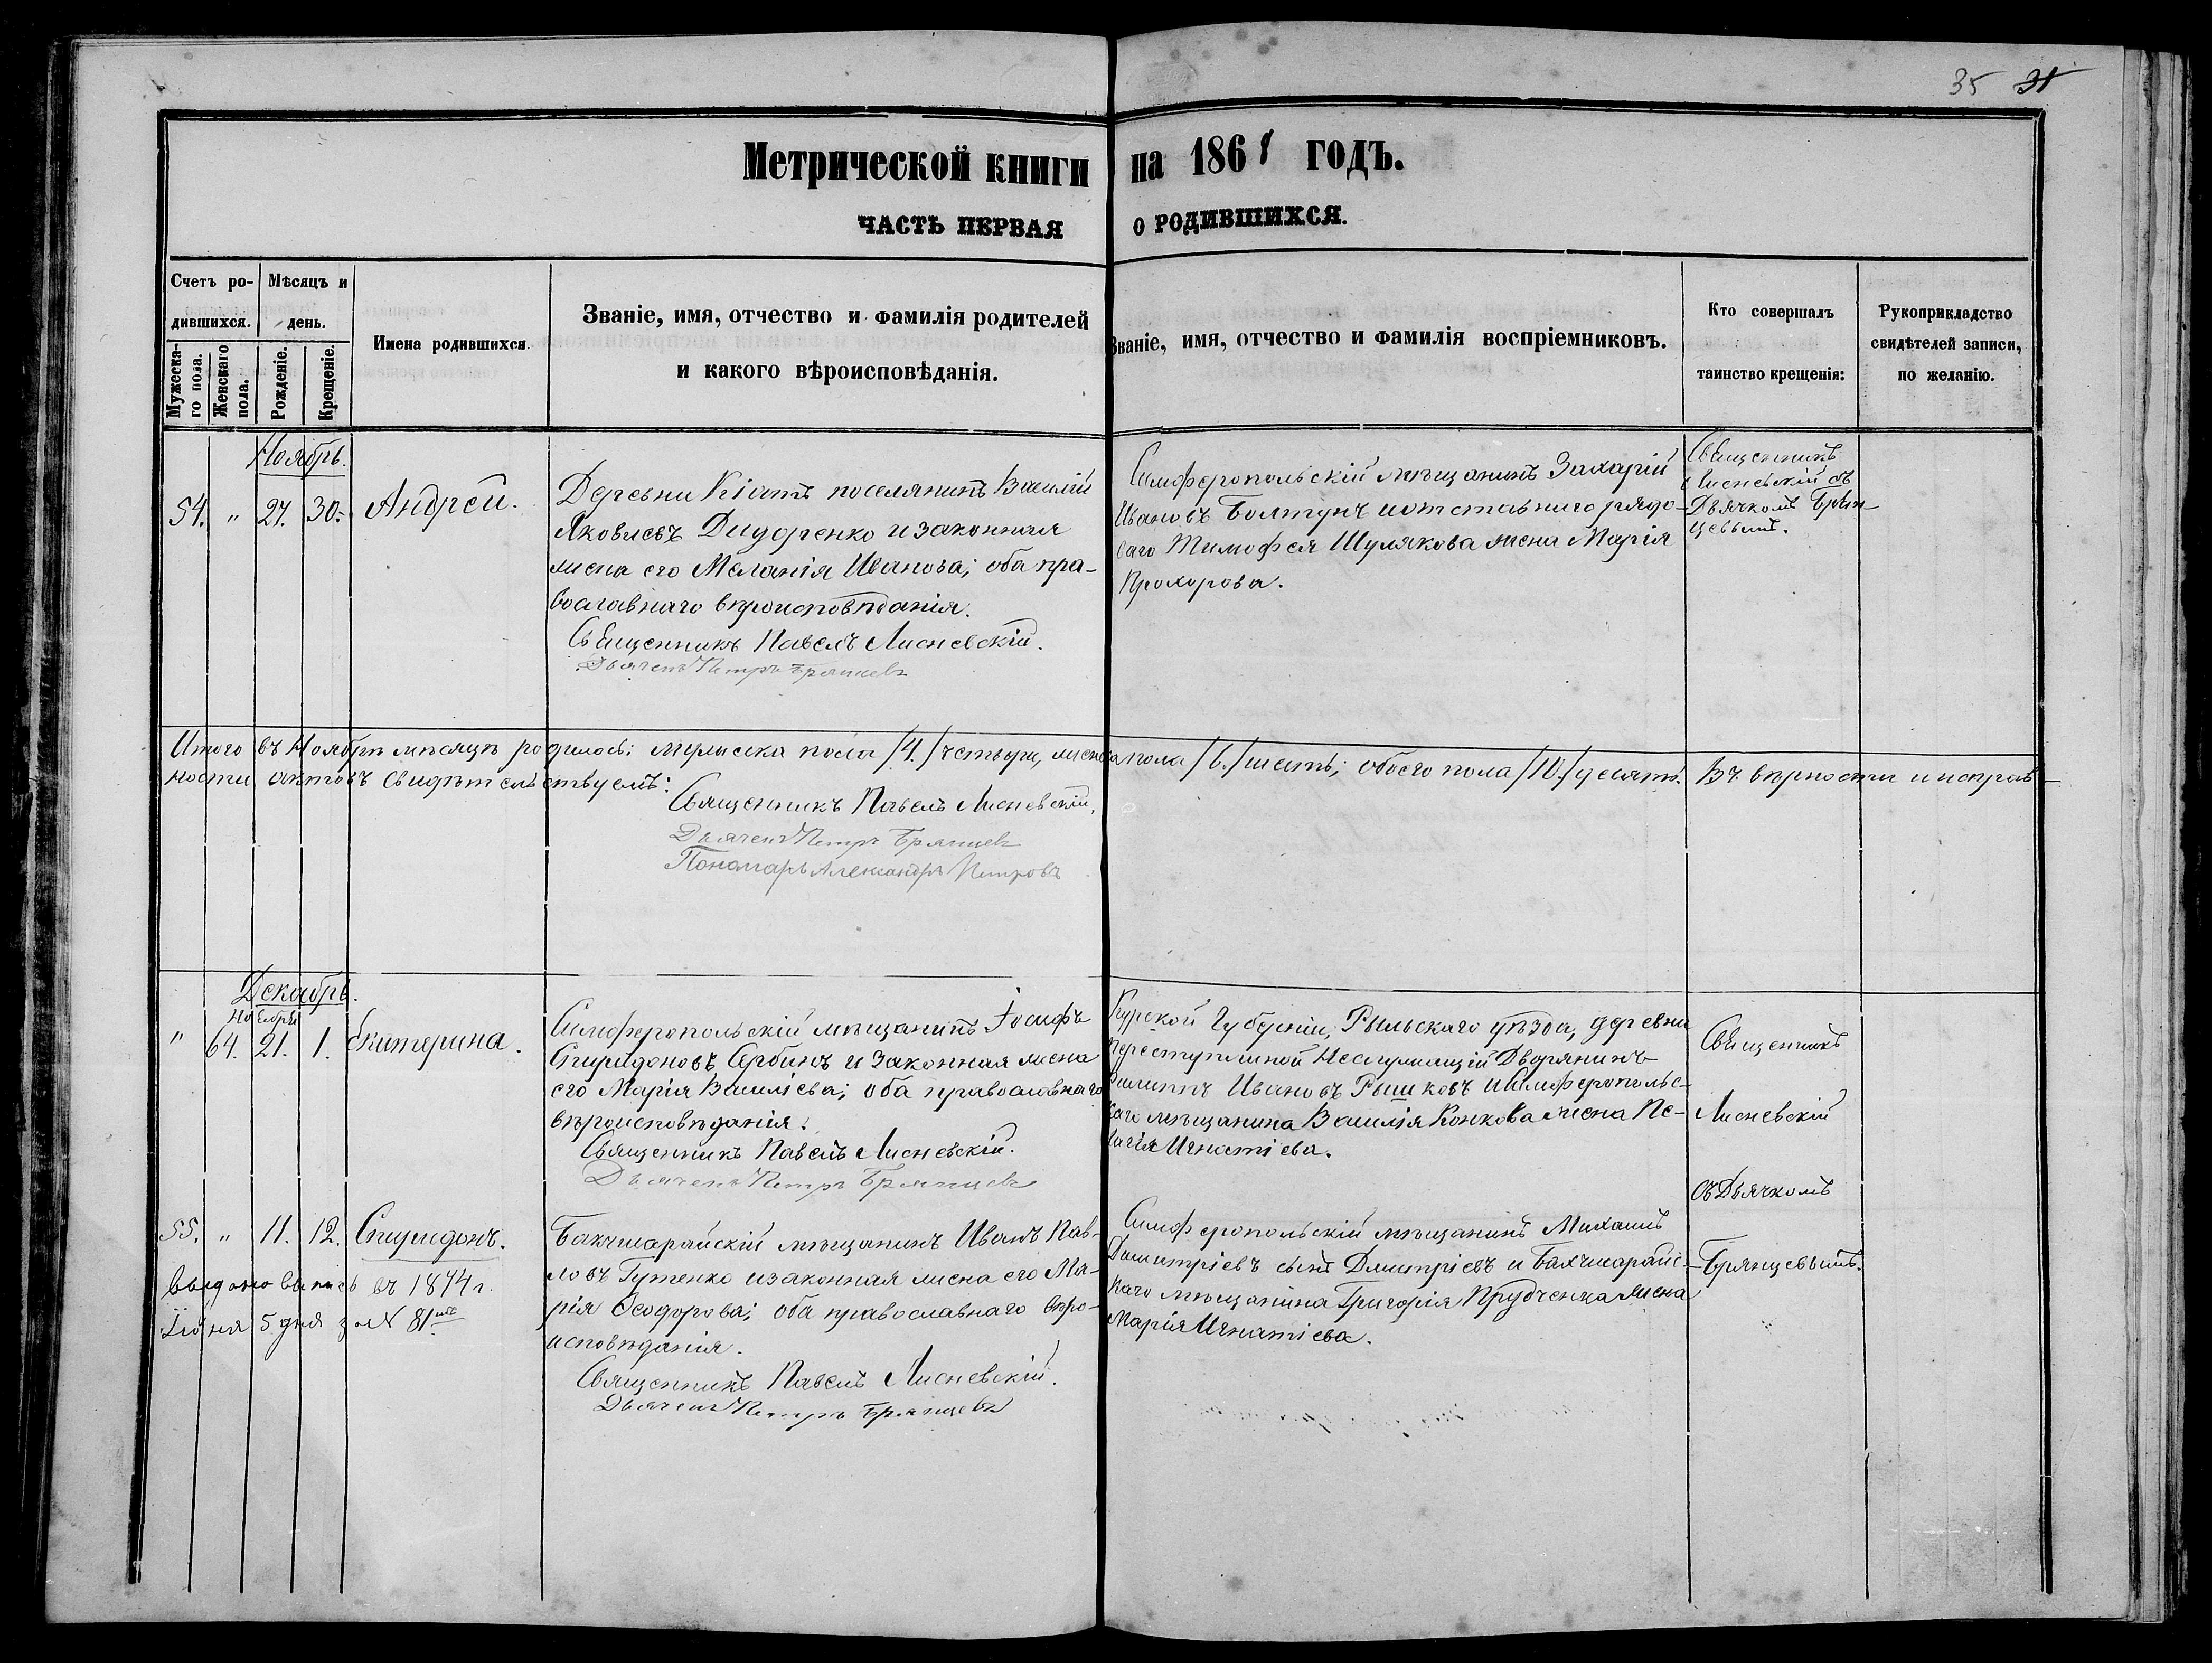 35 31
Метрической книги на 1868 годъ.
ЧАСТЬ ПЕРВАЯ О РОДИВШИХСЯ.
Счетъ ро-
дившихся.
Мужеска-
го пола.
Женскаго
пола.
Мѣсяцъ и
день.
Рожденіе.
Крещеніе.
Имена родившихся.
Званіе, имя, отчество и фамилія родителей
и какого вѣроисповѣданія.
Званіе, имя, отчество и фамилія воспріемниковъ.
Кто совершалъ
таинство крещенія:
Рукоприкладство
свидѣтелей записи,
по желанію.
Ноябрь.
54. " 27. 30. Андрей.
Деревни Кіятъ поселянинъ Василій
Яковлевъ Дидоренко и законная
жена его Меланія Иванова; оба пра-
вославнаго вѣроисповѣданія.
Священникъ Павелъ Лисневскій.
Дьячекъ Петръ Брянцевъ
Симферопольскій мѣщанинъ Захарій
Ивановъ Болтунъ и отставнаго рядо-
ваго Тимофея Шулякова жена Марія
Прохорова.
Священникъ
Лисневскій съ
Дьячкомъ Брян-
цевымъ.
Итого въ Ноябрѣ мѣсяцѣ родилось: мужеска пола /4./ четыре, женска пола /6./ шесть; обоего пола /10./ десять. Въ вѣрности и исправ-
ности актовъ свидѣтельствуемъ:
Священникъ Павелъ Лисневскій.
Дьячекъ Петръ Брянцевъ
Пономарь Александръ Петровъ
Декабрь.
Ноября
" 64. 21. 1. Екатерина.
Симферопольскій мѣщанинъ Іосифъ
Спиридоновъ Сербинъ и законная жена
его Марія Василіева; оба православнаго
вѣроисповѣданія.
Священникъ Павелъ Лисневскій.
Дьячекъ Петръ Брянцевъ
Курской Губерніи, Рыльскаго уѣзда, деревни
Неслужащій Дворянинъ
Филиппъ Ивановъ Рышковъ и Симферопольс-
каго мѣщанина Василія Конкова жена Пе-
лагія Игнатіева.
Священникъ
Лисневскій
съ Дьячкомъ
Брянцевымъ.
55. " 11. 12. Спиридонъ.
Выдана выпись въ 1874 г.
Іюня 5 дня за № 81
Бахчисарайскій мѣщанинъ Иванъ Пав-
ловъ Гутенко и законная жена его Ма-
рія Ѳеодорова; оба православнаго вѣро-
исповѣданія.
Священникъ Павелъ Лисневскій.
Дьячекъ Петръ Брянцевъ
Симферопольскій мѣщанинъ Михаилъ
Димитріевъ сынъ Дмитріевъ и Бахчисарайс-
каго мѣщанина Григорія Прудченка жена
Марія Игнатіева.